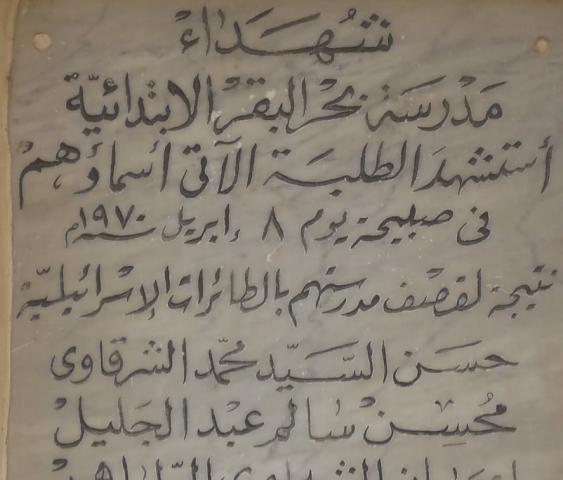 شُهَدَاءُ
مَدْرسَة بَحْر البَقَرْ الابْتدائيّة
أستشهدَ الطلبَة الآتى أسماؤهمْ
فى صبيحة يوم ٨ إبريل سنة ١٩٧٠م
نتيجة لقصْف مدرستهم بالطائرات الإسْرائيليّة
حسَن السَّيّد محمَّد الشرقاوى
مُحسِن سَالم عبْد الجَليلْ